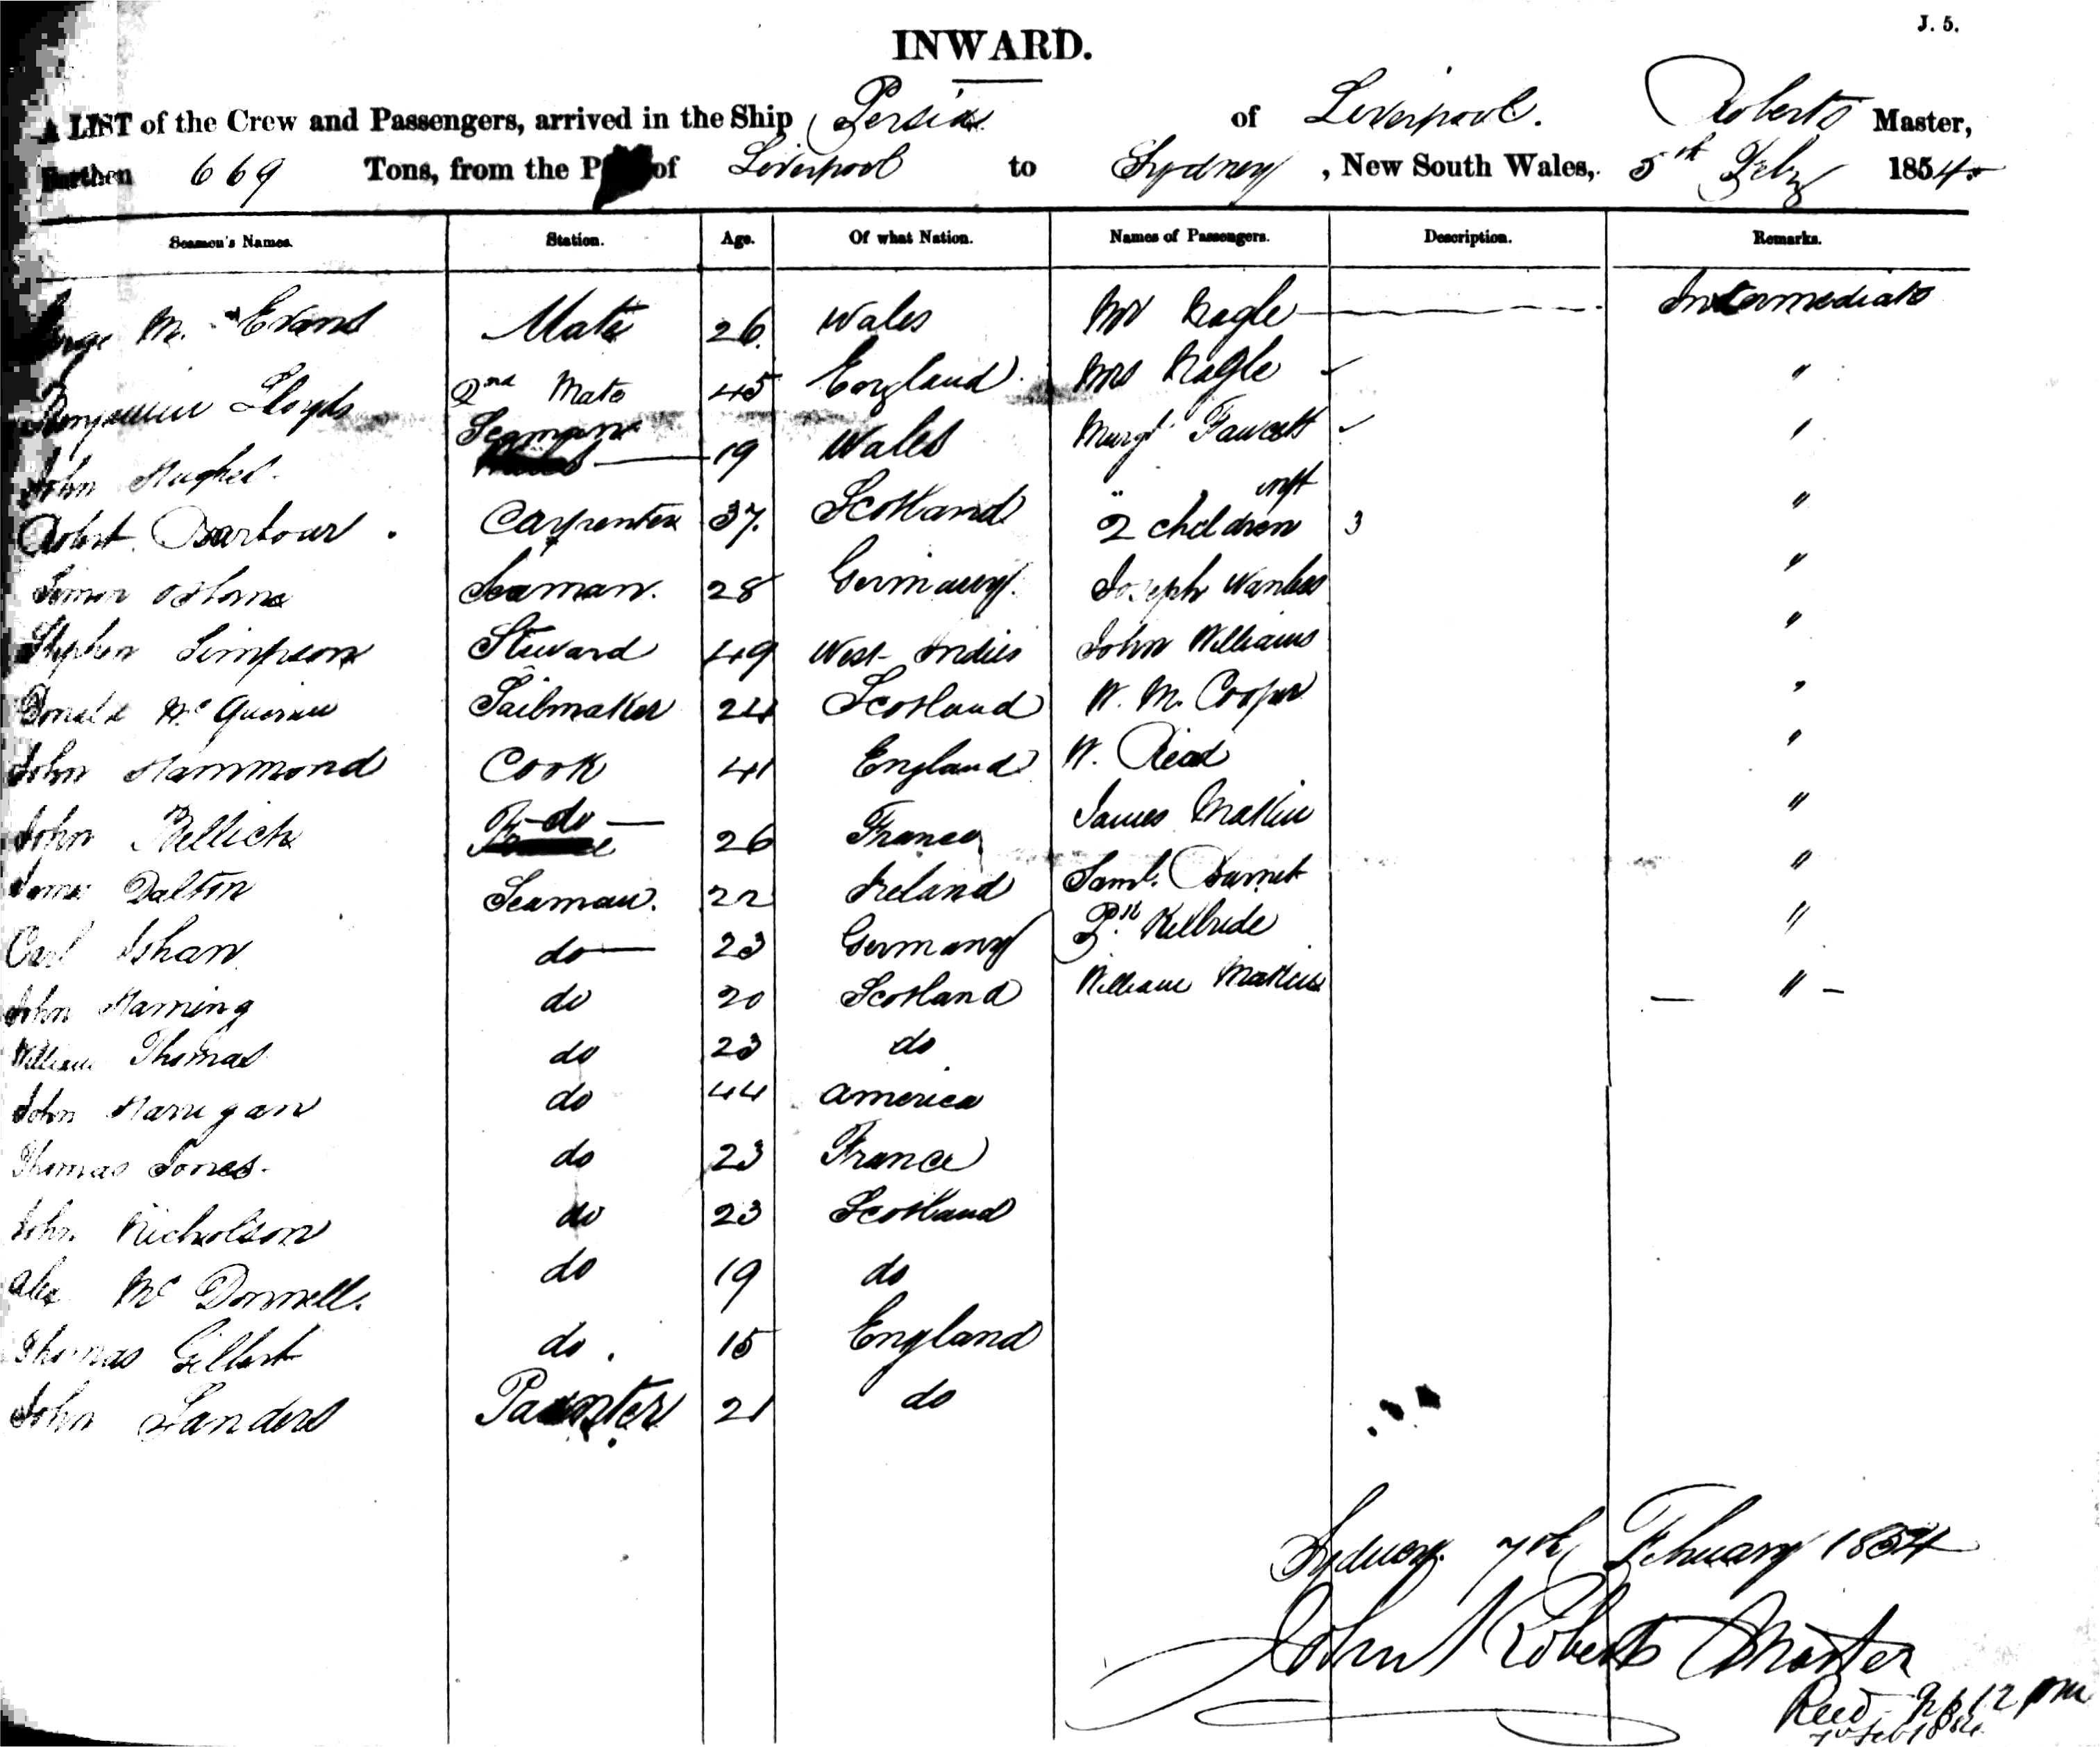 J. 5.
INWARD.
A LIST of the Crew and Passengers, arrived in the Ship Persia of Liverpool. Roberts Master,
Burthen 669 Tons, from the P of Liverpool to Sydney, New South Wales, 5th Feby 1854.
Seamen's Names. Station. Age. Of what Nation. Names of Passengers. Description. Remarks.
M. Evans Mate 26. Wales Mr Nagle Intermediate
Benjamin Lloyds 2nd Mate 45 England Mrs Nagle "
John Hughes Seaman 19 Wales Margt Fawcett "
Robert Barbour. Carpenter 37. Scotland " 2 children inft 3 "
Simon Seaman. 28 Germany. Joseph "
Stephen Simpson Steward 49 West Indies John Williams "
Donald Mc Sailmaker 24 Scotland W. M. Cooper "
John Hammond Cook 41 England W. Read "
John Bellick do 26 France James Makin "
James Dalton Seaman. 22 Ireland Saml. Barnet "
Carl do 23 Germany Kilbride "
John Haming do 20 Scotland William Makin "
William Thomas do 23 do
John Harrigan do 44 America
Thomas Jones. do 23 France
John Nicholson do 23 Scotland
Alex Mc Donnell. do 19 do
Thomas Gilbert do. 15 England
John Sanders Painter 21 do
Sydney. 7th February 1854
John Roberts Master
Recd 12 pm
7 Feb 1854